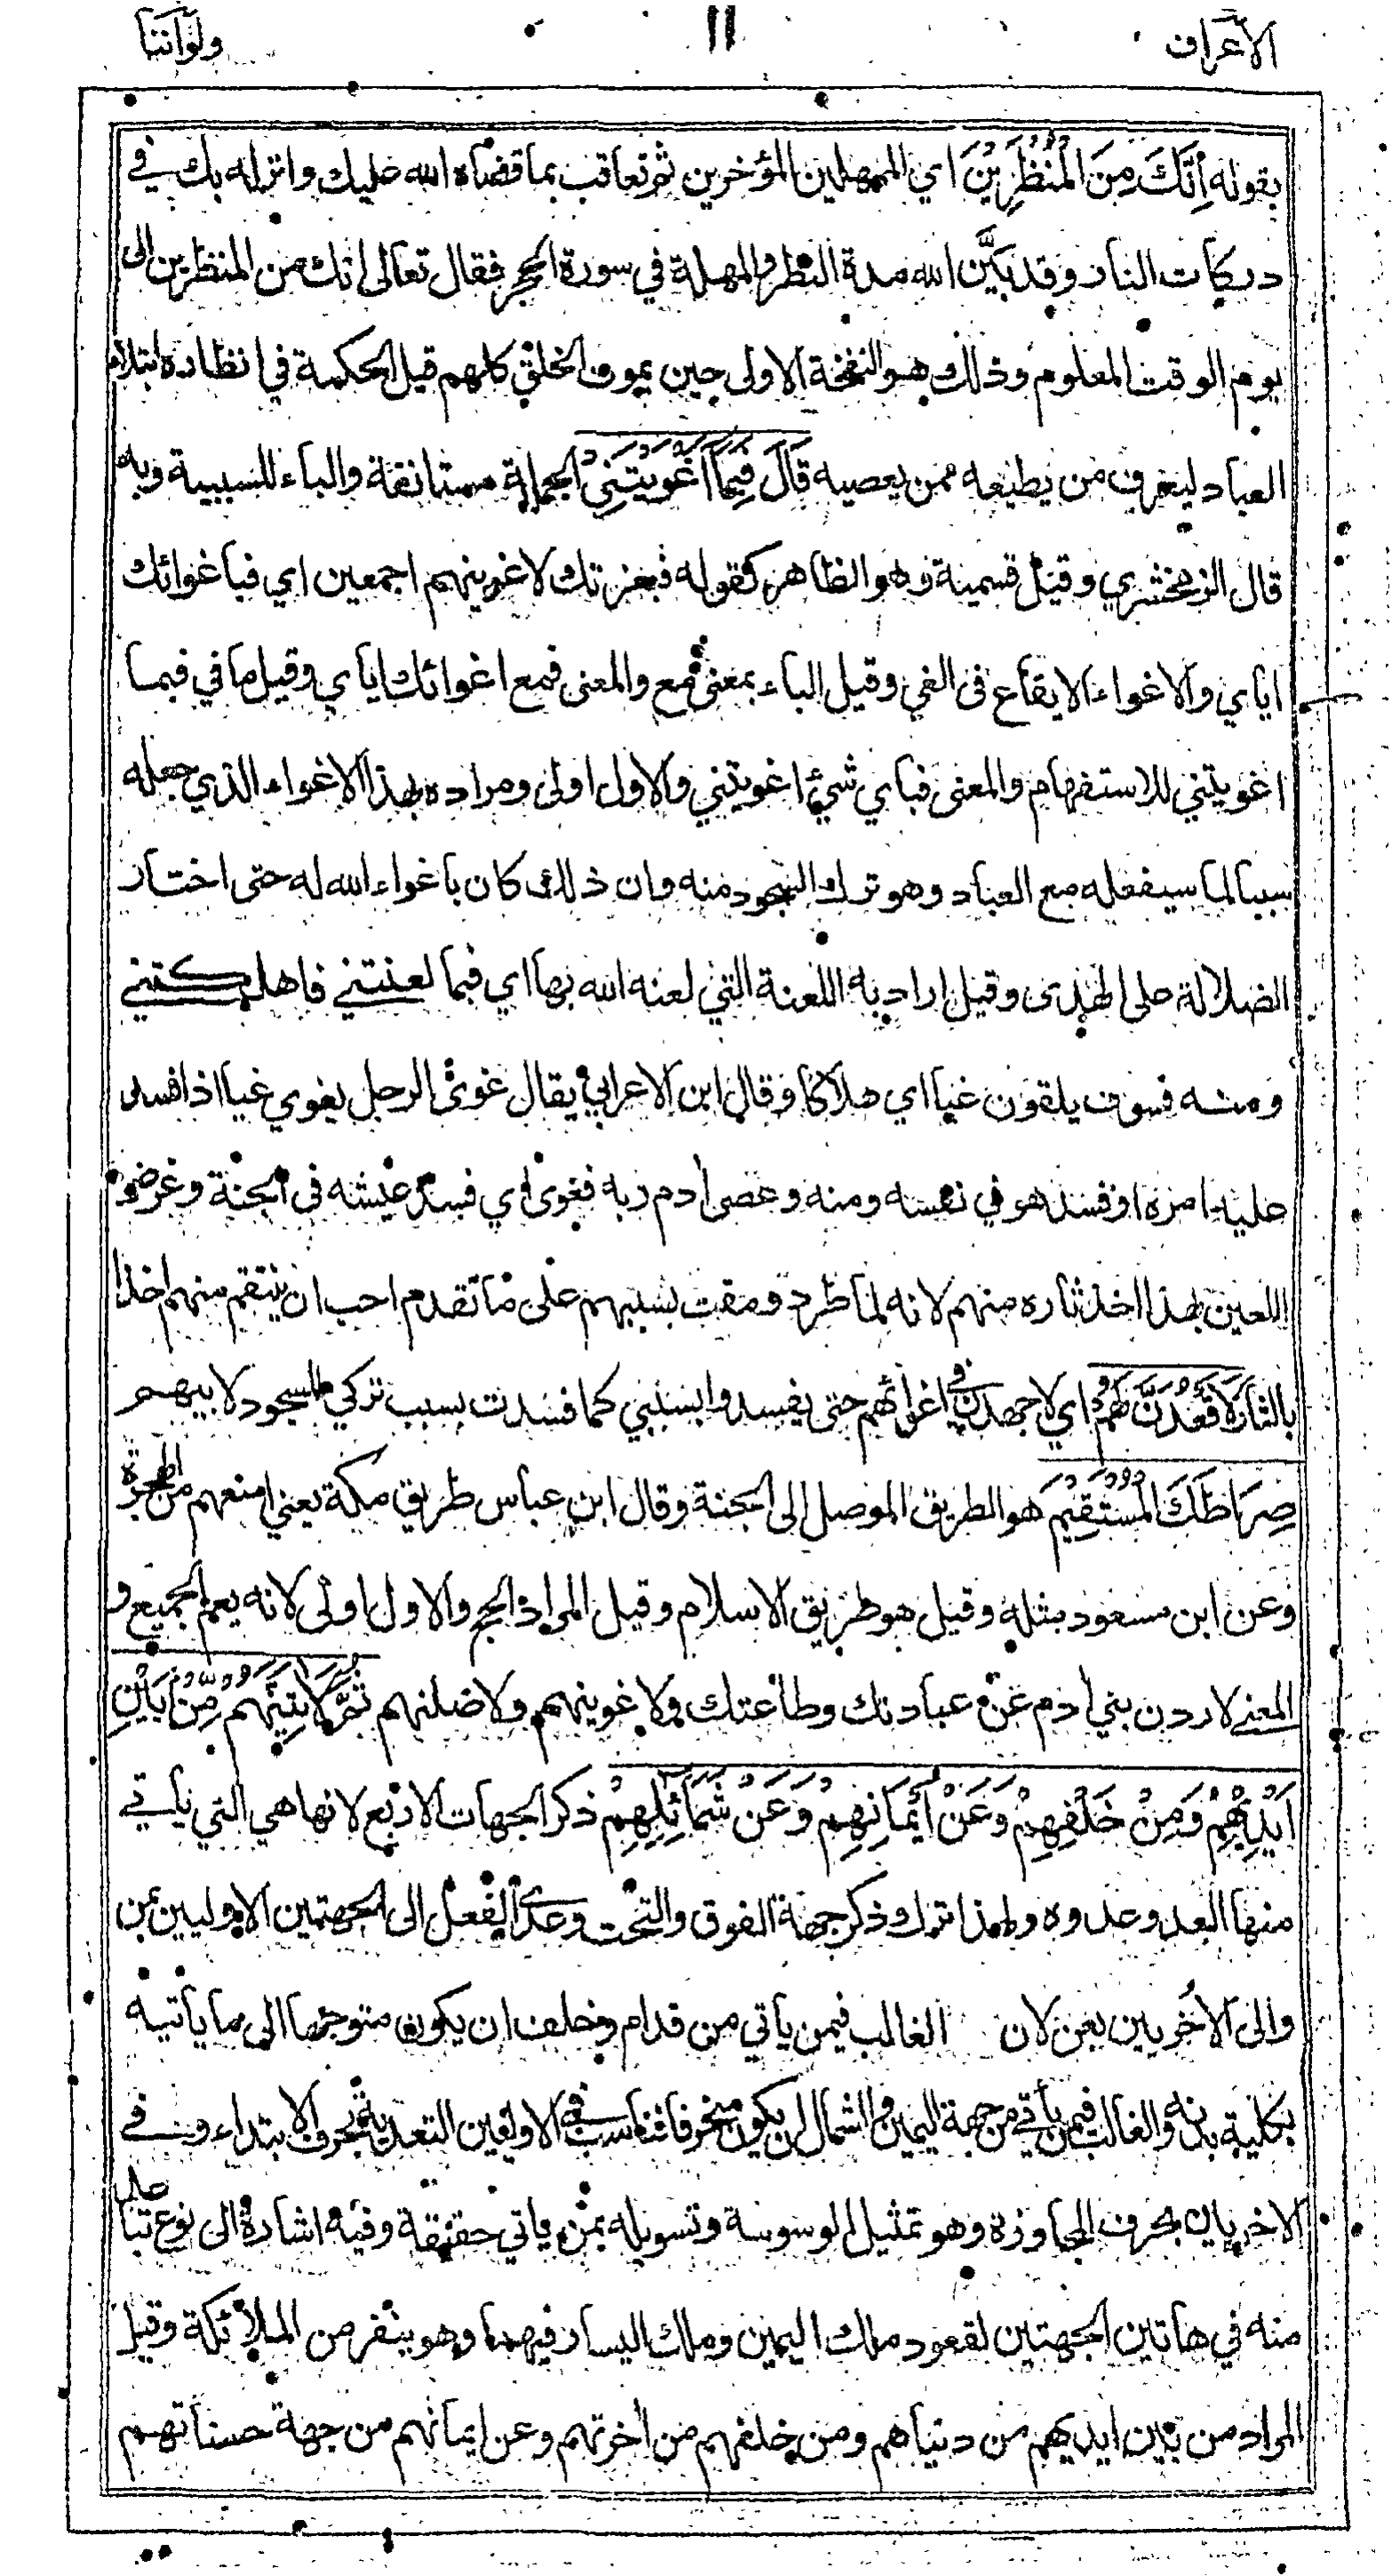 الأعراف ١١ ولوأننا
بقوله اِنَّكَ مِنَ الْمُنْظَرِيْنَ اي الممهلين المؤخرين ثم تعاقب بما قضاه الله عليك وانزله بك في
دركات النار وقد بيَّن الله مدة النظر والمهلة في سورة الحجر فقال تعالى انك من المنظرين الى
يوم الوقت المعلوم وذلك هو النفخة الاولى حين يموت الخلق كلهم قيل الحكمة في انظاره ابتلاء
العباد ليعرف من يطيعه ممن يعصيه قَالَ فَبِمَآ اَغْوَيْتَنِيْ الجملة مستانفة والباء للسببية وبه
قال الزمخشري وقيل قسمية وهو الظاهر كقوله فبعزتك لاغوينهم اجمعين اي فباغوائك
اياي والاغواء الايقاع فى الغي وقيل الباء بمعنى مع والمعنى فمع اغوائك اياي وقيل ما في فبما
اغويتني للاستفهام والمعنى فباي شيء اغويتني والاول اولى ومراده بهذا الاغواء الذي جعله
سببا لما سيفعله مع العباد وهو ترك السجود منه وان ذلك كان باغواء الله له حتى اختار
الضلالة على الهدى وقيل اراد به اللعنة التي لعنه الله بها اي فبما لعنتني فاهلكتني
ومنه فسوف يلقون غيا اي هلاكا وقال ابن الاعرابي يقال غوى الرجل يغوي غيا اذا فسد
عليه امره او فسد هو في نفسه ومنه وعصى ادم ربه فغوى اي فسد عيشه فى الجنة وغرض
اللعين بهذا اخذ ثاره منهم لانه لما طرد ومقت بسببهم على ما تقدم احب ان ينتقم منهم اخذا
بالثار لَاَقْعُدَنَّ لَهُمْ اي لاجهدن في اغوائهم حتى يفسدوا بسببي كما فسدت بسبب تركي للسجود لابيهم
صِرَاطَكَ الْمُسْتَقِيْمَ هو الطريق الموصل الى الجنة وقال ابن عباس طريق مكة يعني امنعهم من الهجرة
وعن ابن مسعود مثله وقيل هو طريق الاسلام وقيل المراد الحج والاول اولى لانه يعم الجميع و
المعنى لاردن بني ادم عن عبادتك وطاعتك ولاغوينهم ولاضلنهم ثُمَّ لَاٰتِيَنَّهُمْ مِّنْ بَيْنِ
اَيْدِيْهِمْ وَمِنْ خَلْفِهِمْ وَعَنْ اَيْمَانِهِمْ وَعَنْ شَمَآئِلِهِمْ ذكر الجهات الاربع لانها هي التي ياتي
منها العدو عدوه ولهذا ترك ذكر جهة الفوق والتحت وعدى الفعل الى الجهتين الاوليين بمن
والى الأخريين بعن لان الغالب فيمن يأتي من قدام وخلف ان يكون متوجها الى ما ياتيه
بكلية بدنه والغالب فيمن ياتي من جهة اليمين والشمال ان يكون منحرفا فناسب في الاوليين التعدية بحرف الابتداء وفي
الاخريين بحرف المجاوزة وهو تمثيل لوسوسة وتسويله بمن ياتي حقيقة وفيه اشارة الى نوع تباعد
منه في هاتين الجهتين لقعود ملك اليمين وملك اليسار فيهما وهو ينفر من الملائكة وقيل
المراد من بين ايديهم من دنياهم ومن خلفهم من اخرتهم وعن ايمانهم من جهة حسناتهم